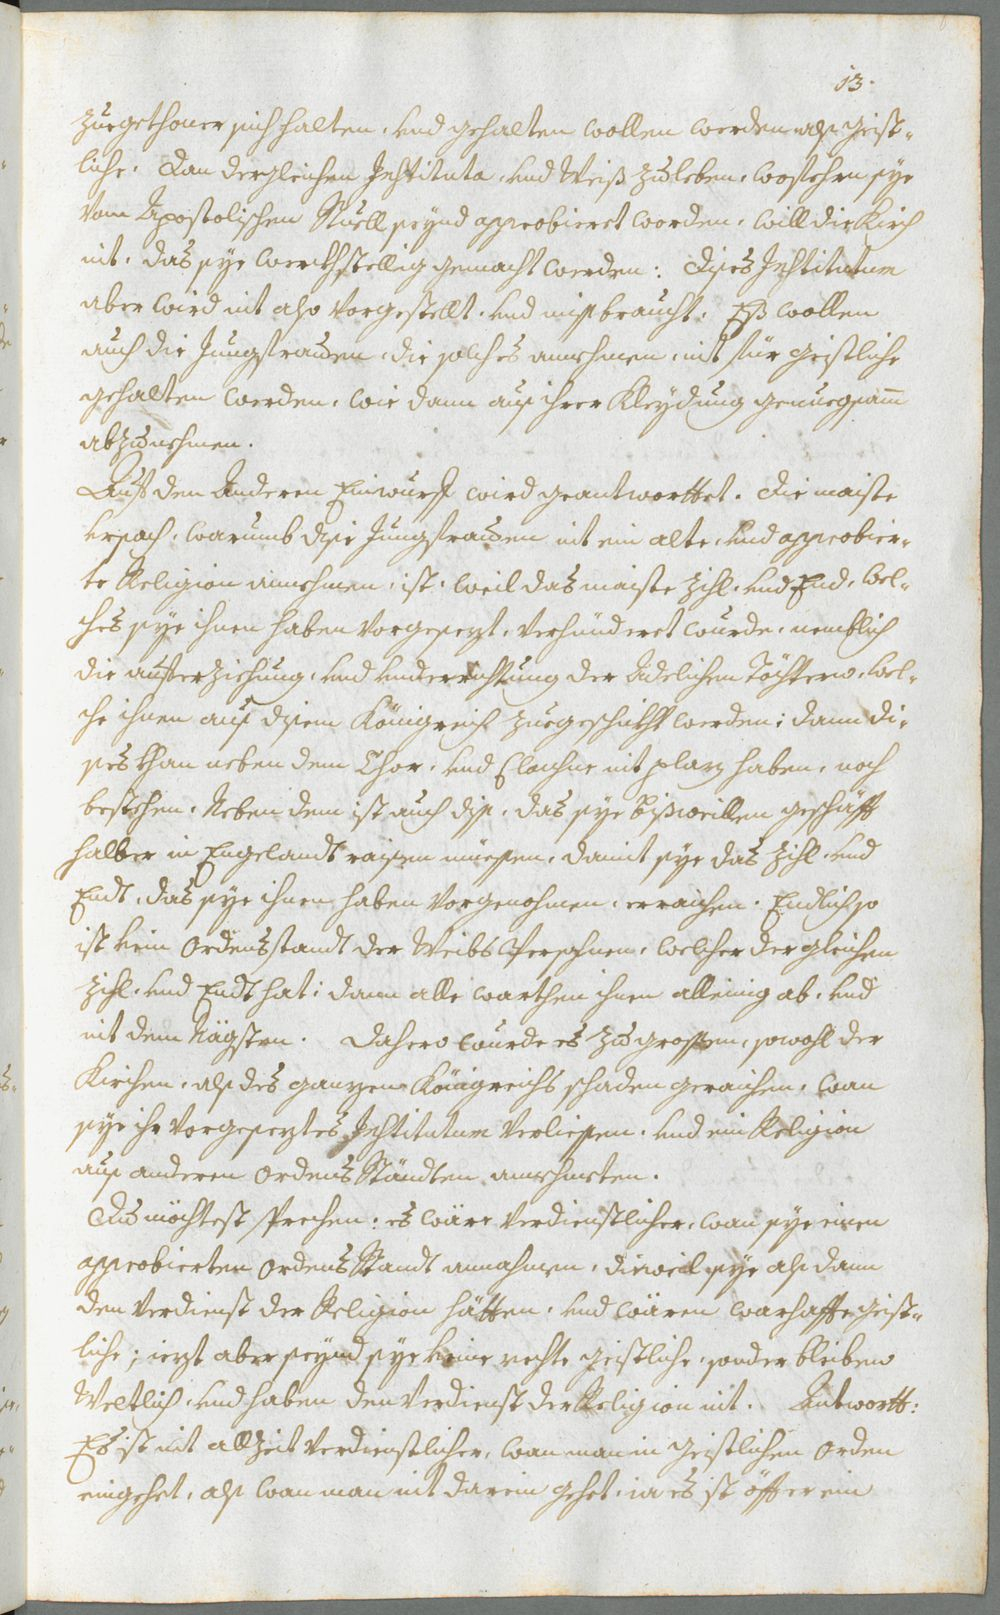 13.
zuegethoner sich halten, und gehalten wollen werden als geist-
liche. Dan dergleichen Instituta, und Weiß zuleben, wofehrn sye
vom Apostolischen Stuell seynd approbieret worden, will die Kirch
nit, das sye werckhstellig gemacht werden: Dises Institutum
aber wird nit also vorgestellt, und missbraucht. Eß wollen
auch die Jungfrauen, die solches annehmen, nit für geistliche
gehalten werden, wie dann aus ihrer Kleydung genuegsam
abzunehmen.
Auff den Anderen Einwurff wird geantworttet. Die maiste
Ursach, warumb dise Jungfrauen nit ein alte, und approbier-
te Religion annehmen, ist, weil das maiste Zihl, und End, wel-
ches sye ihnen haben vorgesezt, verhünderet wurde, nemblich
die aufferziehung, und underrichtung der Adelichen Töchtern, wel-
che ihnen auß disem Königreich zuegeschickht werden; dann di-
ses khan neben dem Chor, und Clausur nit plaz haben, noch
bestehen. Neben dem ist auch diß, das sye bißweillen geschäfft
halber in Engelandt raisen müessen, damit sye das Zihl, und
Endt, das sye ihnen haben vorgenohmen, erraichen. Endlich so
ist kein Ordensstandt der Weibs Persohnen, welcher dergleichen
Zihl, und Endt hat: dann alle warthen ihnen alleinig ab, und
nit dem Nägsten. Dahero wurde es zu grossen, sowohl der
Kirchen, als des ganzen Königreichs schaden geraichen, wan
sye ihr vorgeseztes Institutum verliessen, und ein Religion
aus anderen Ordens Ständten annehmeten.
Du möchtest sprechen: es wäre verdienstlicher, wan sye einen
approbierten Ordens Standt annahmen, dieweil sye als dann
den Verdienst der Religion hätten, und wären warhaffte geist-
liche; iezt aber seynd sye keine rechte geistliche, sonder bleiben
Weltlich, und haben den Verdienst der Religion nit. Antwortt:
Es ist nit allzeit verdienstlicher, wan man in geistlichen Orden
eingehet, als wan man nit darein gehet, ia es ist öffter ein